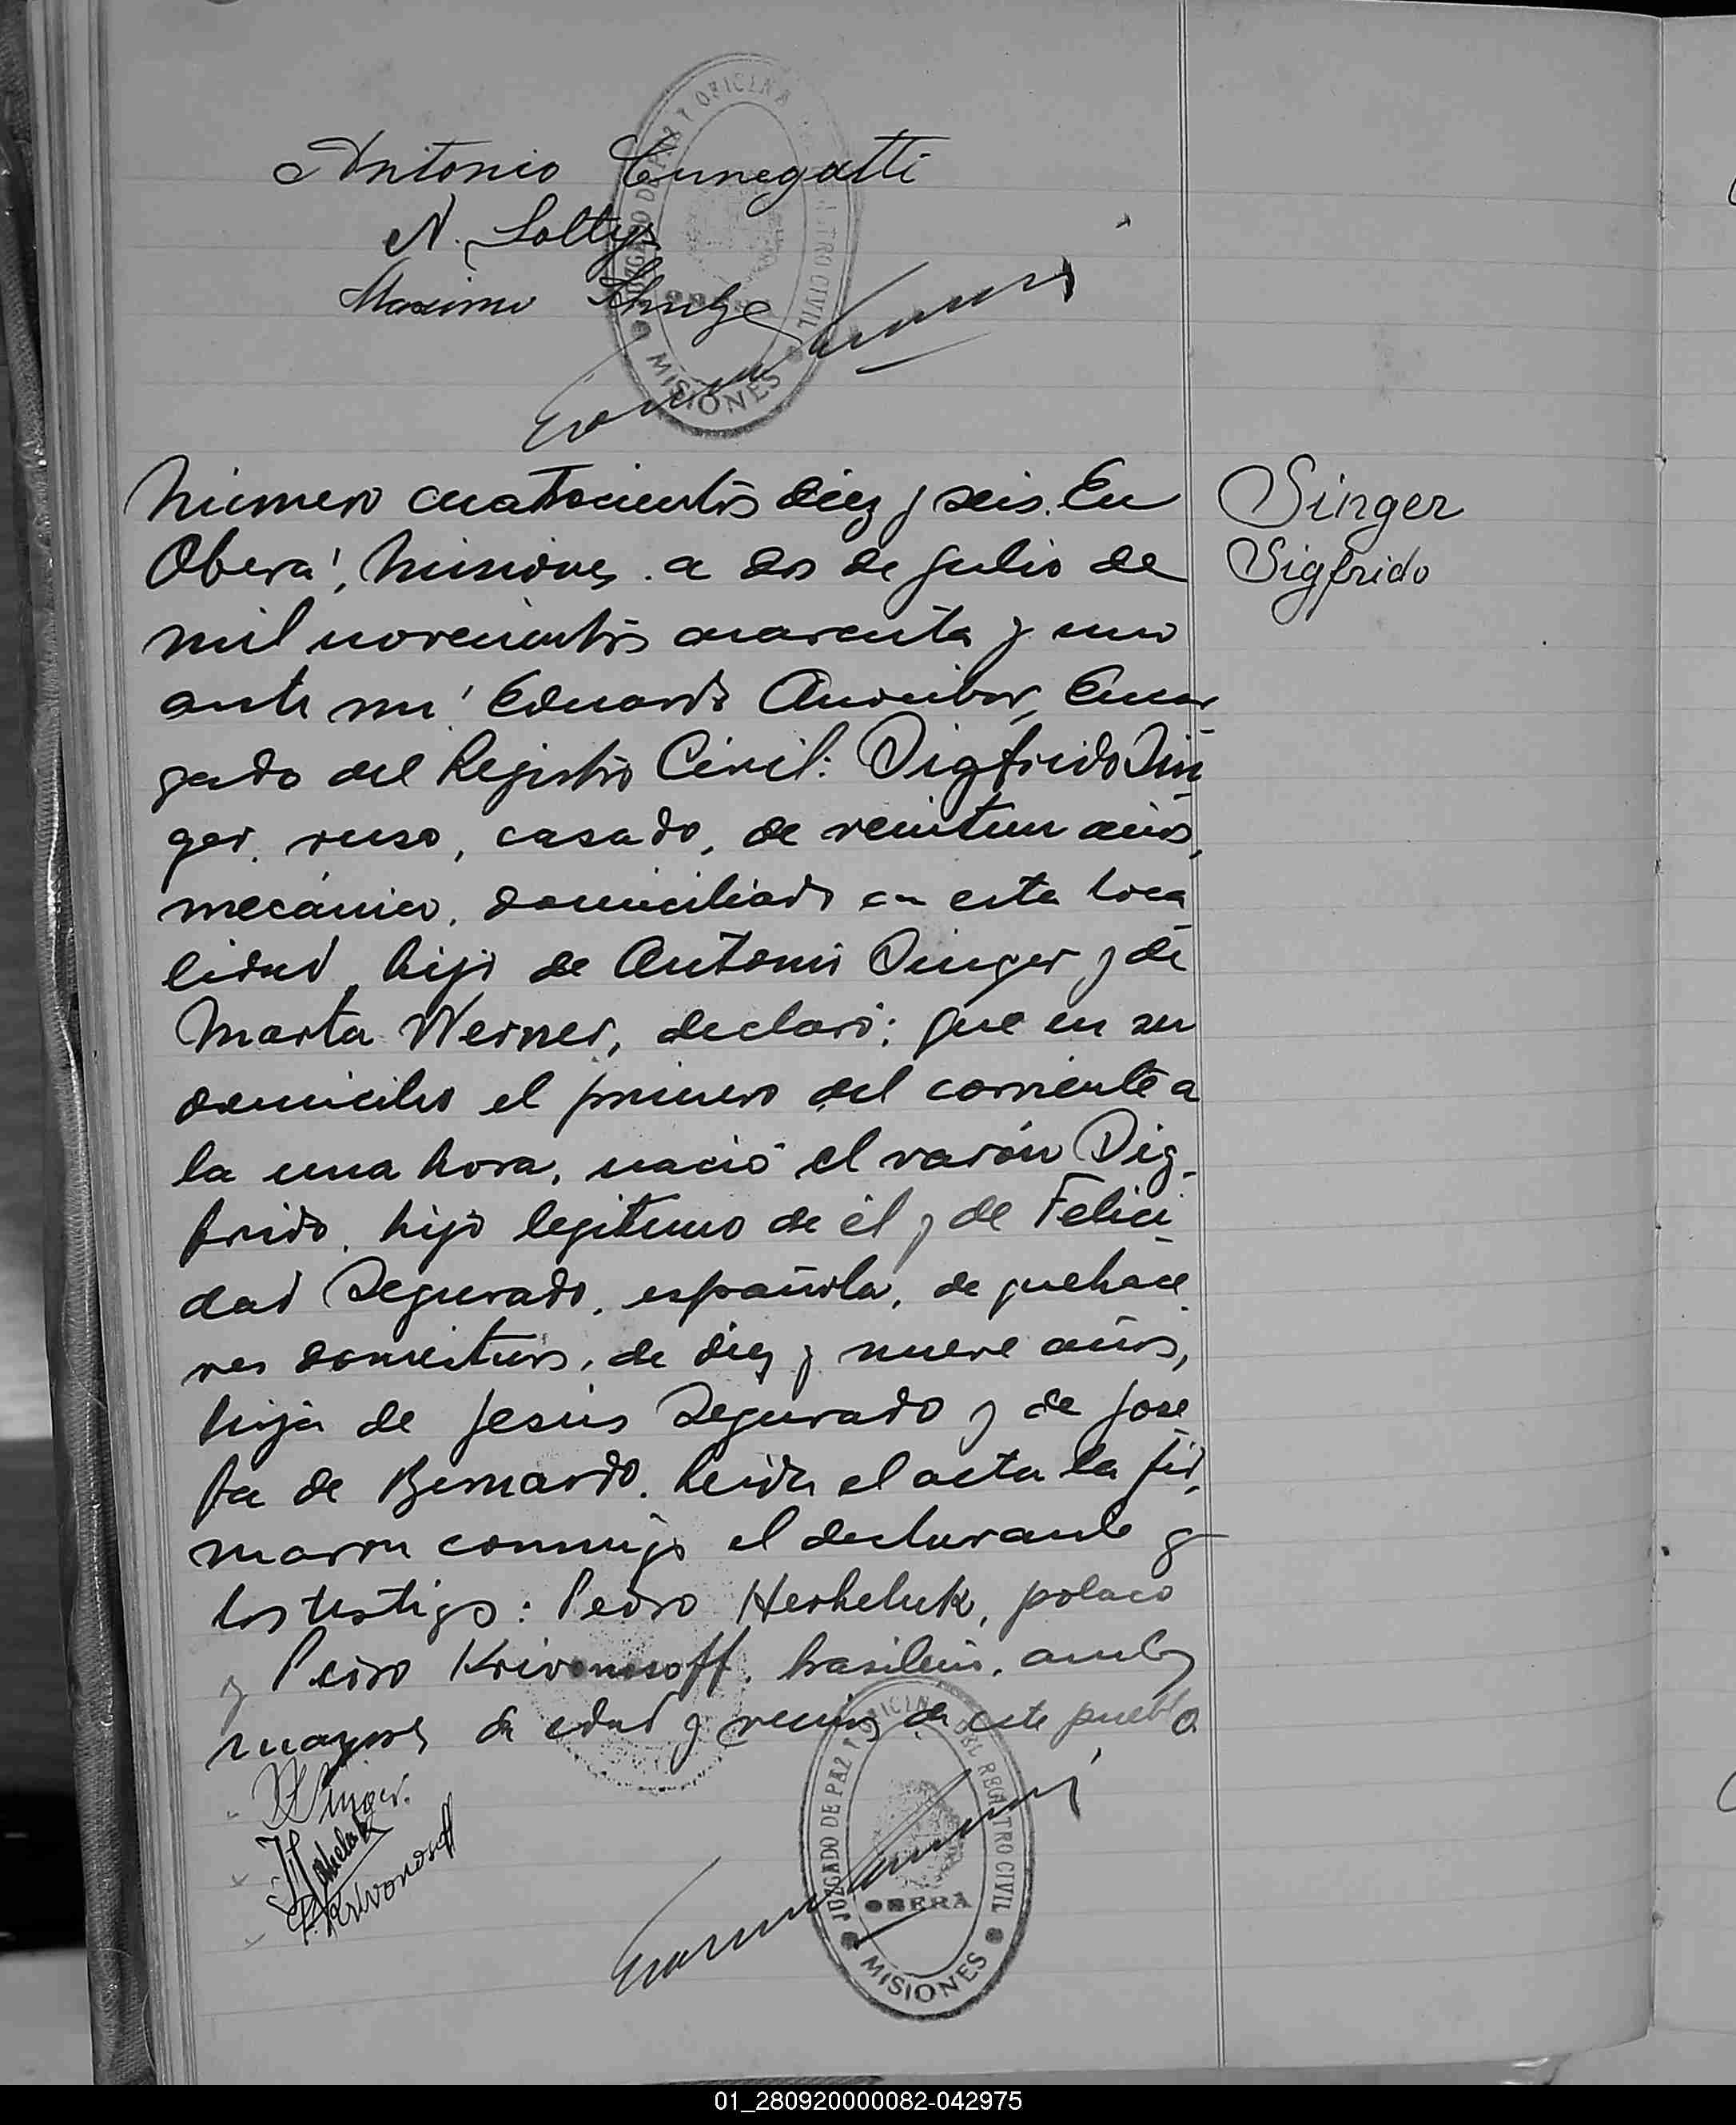 Antonio Cunegatti
N. Soltys
Maximo
JUZGADO DE PAZ Y OFICINA DEL REGISTRO CIVIL
MISIONES
Número cuatrocientos diez y seis. En
Oberá, Misiones a dos de julio de
mil novecientos cuarenta y uno
ante mí Eduardo Encar
gado del Registro Civil: Sigfrido Sin
ger, ruso, casado, de veintiun años,
mecánico, domiciliado en esta loca
lidad, hijo de Antonio Singer y de
Marta Werner, declaró: que en su
domicilio el primero del corriente a
la una hora, nació el varón Sig-
frido, hijo legitimo de él y de Felici
dad Segurado, española, de quehace
res domésticos, de diez y nueve años,
hija de Jesús Segurado y de Jose
fa de Bernardo. Leida el acta la fir
maron conmigo el declarante y
los testigos: Pedro Hesheluk, polaco
y Pedro Krivonosoff, brasileño, ambos
mayores de edad y vecinos de este pueblo
Singer
Sigfrido
S Singer.
P. Krivonosoff
JUZGADO DE PAZ Y OFICINA DEL REGISTRO CIVIL
OBERÁ
MISIONES
01_280920000082-042975